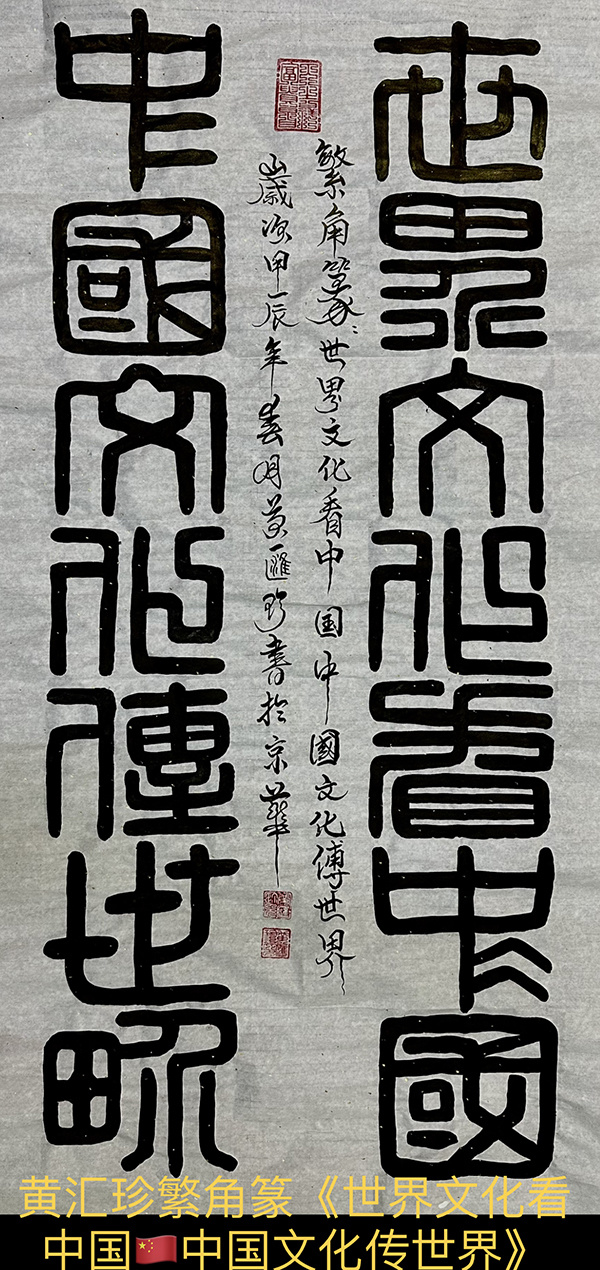 世界文化看中國
繁角篆：世界文化看中国中國文化傳世界
嵗次甲辰年春月黄匯珍書於京華
中國文化傳世界
黄汇珍繁角篆《世界文化看
中国🇨🇳中国文化传世界》